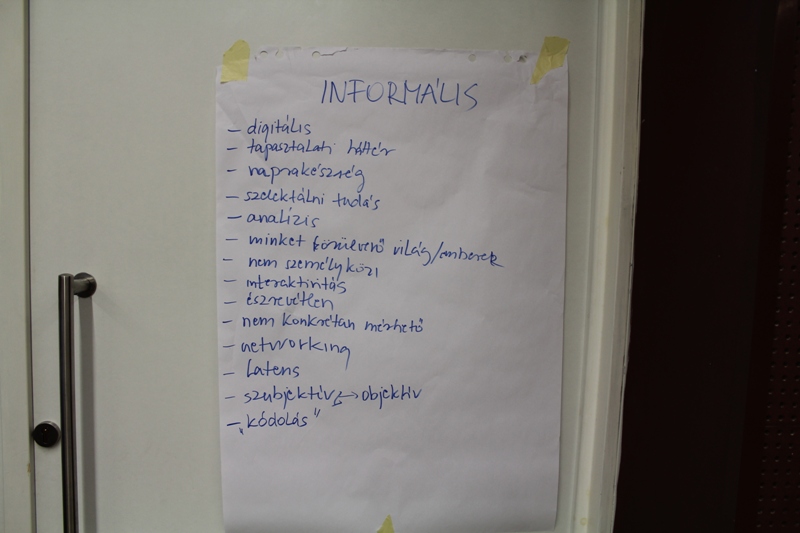 INFORMÁLIS
– digitális
– tapasztalati háttér
– naprakészség
– szelektálni tudás
– analízis
– minket körülvevő világ/emberek
– nem személyközi
– interaktivitás
– észrevétlen
– nem konkrétan mérhető
– networking
– latens
– szubjektív ↔ objektív
– „kódolás"